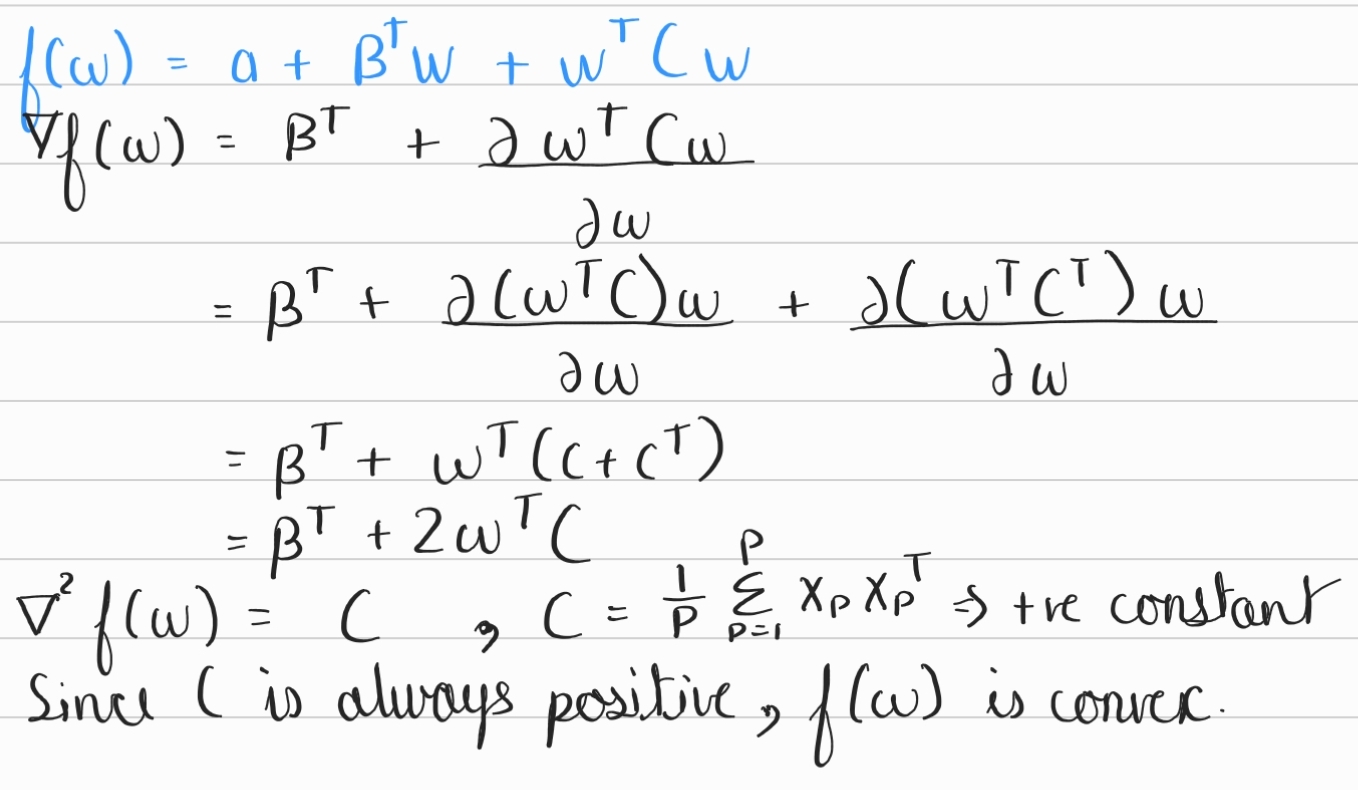 f(ω) = a + β^T w + w^T C w
∇f(ω) = β^T + ∂ω^T Cω / ∂ω
= β^T + ∂(ω^T C)ω / ∂ω + ∂(ω^T C^T) ω / ∂ω
= β^T + ω^T (C + C^T)
= β^T + 2ω^T C
∇² f(ω) = C , C = 1/P Σ_{p=1}^{P} x_p x_p^T ⇒ +ve constant
Since C is always positive, f(ω) is convex.